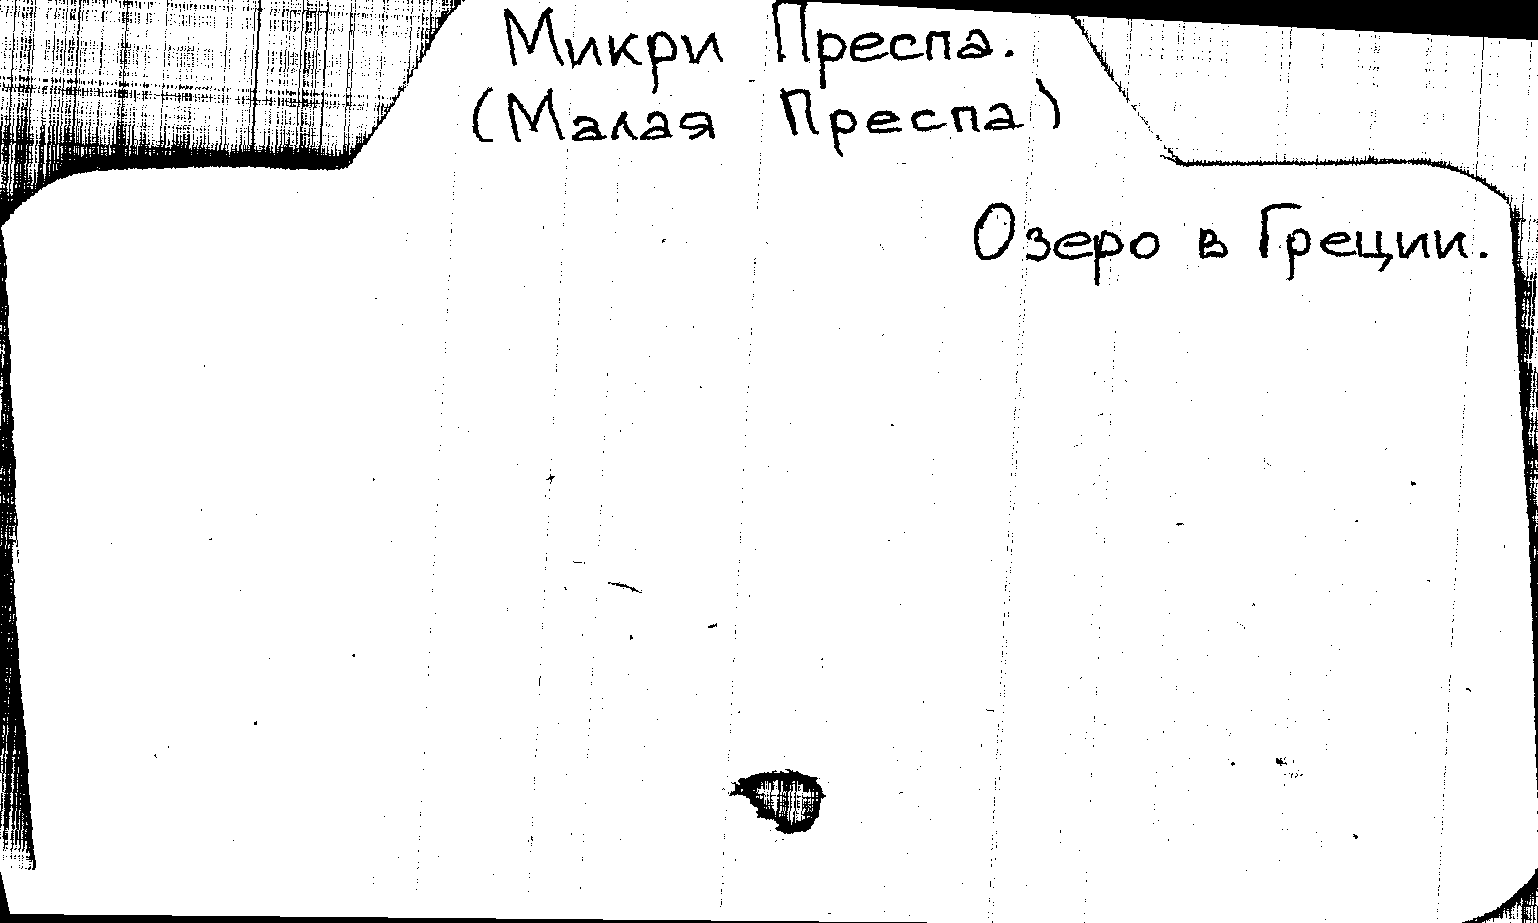 Микри Преспа.
(Малая Преспа)
Озеро в Греции.